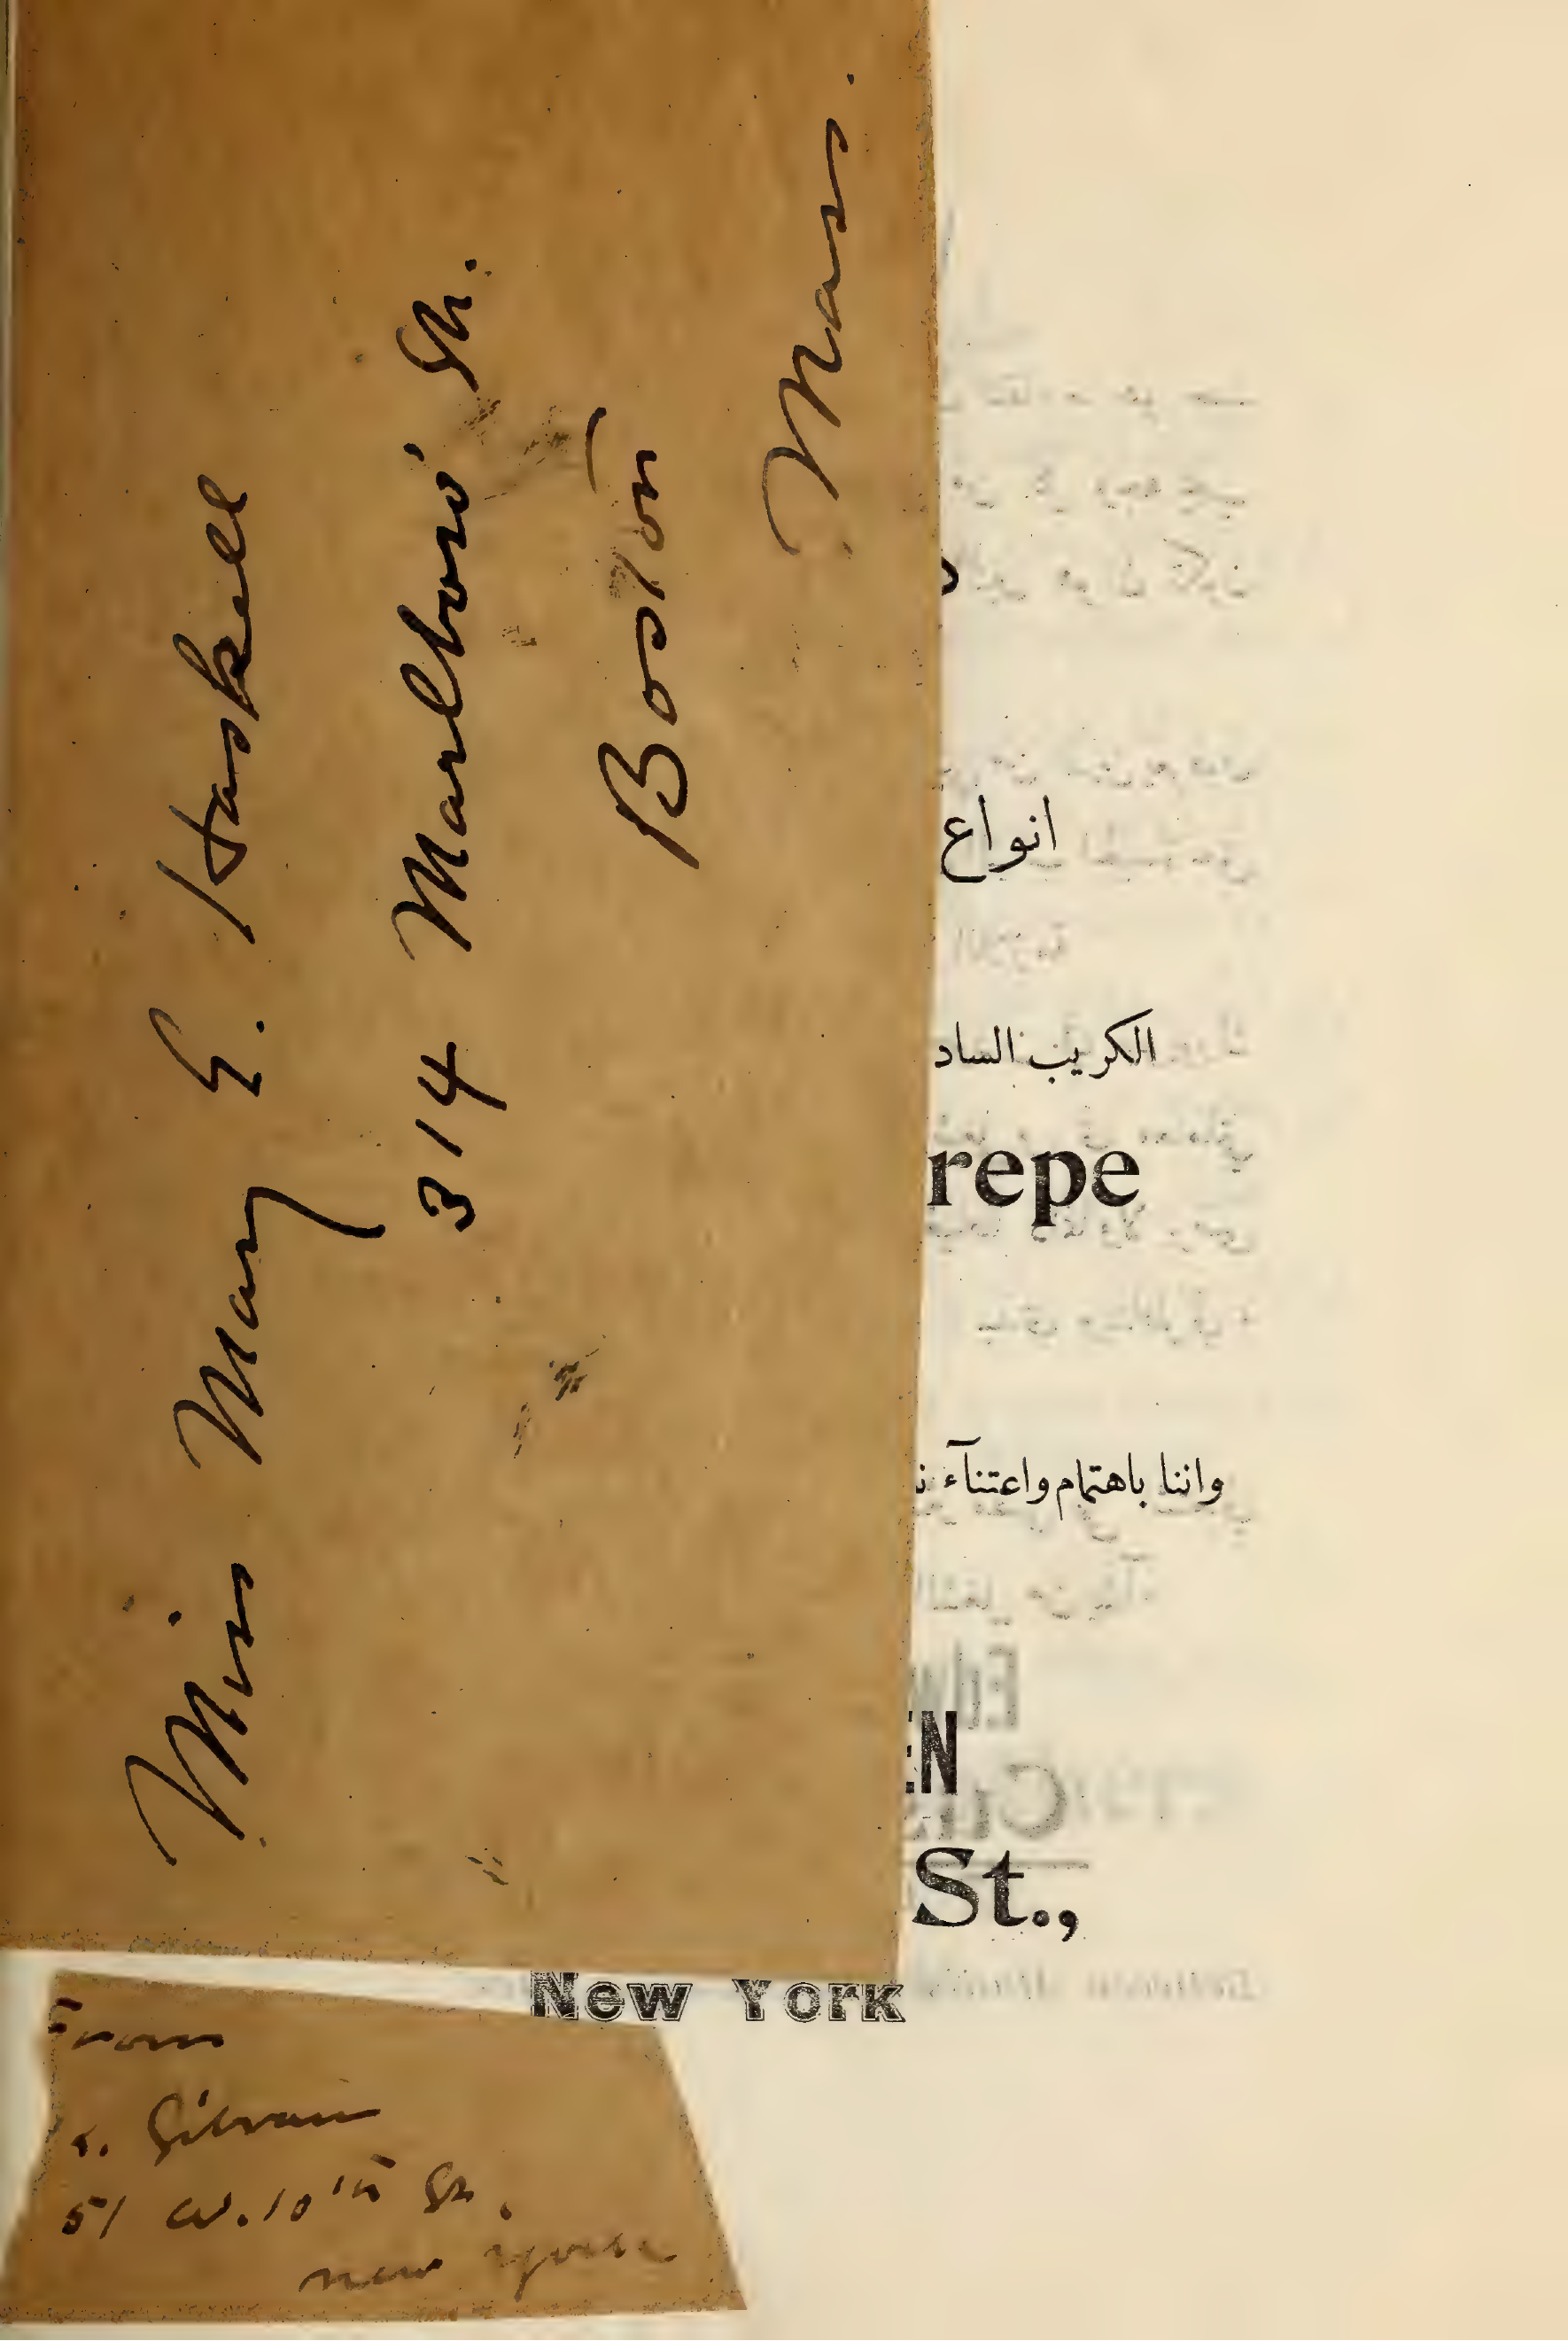 Miss Mary E. Haskell
314 Marlboro' St.
Boston
Mass.
انواع
الكريب الساد
repe
واننا باهتمام واعتنآء
EN
St.,
New York
From
Gibran
51 W. 10th St.
New York